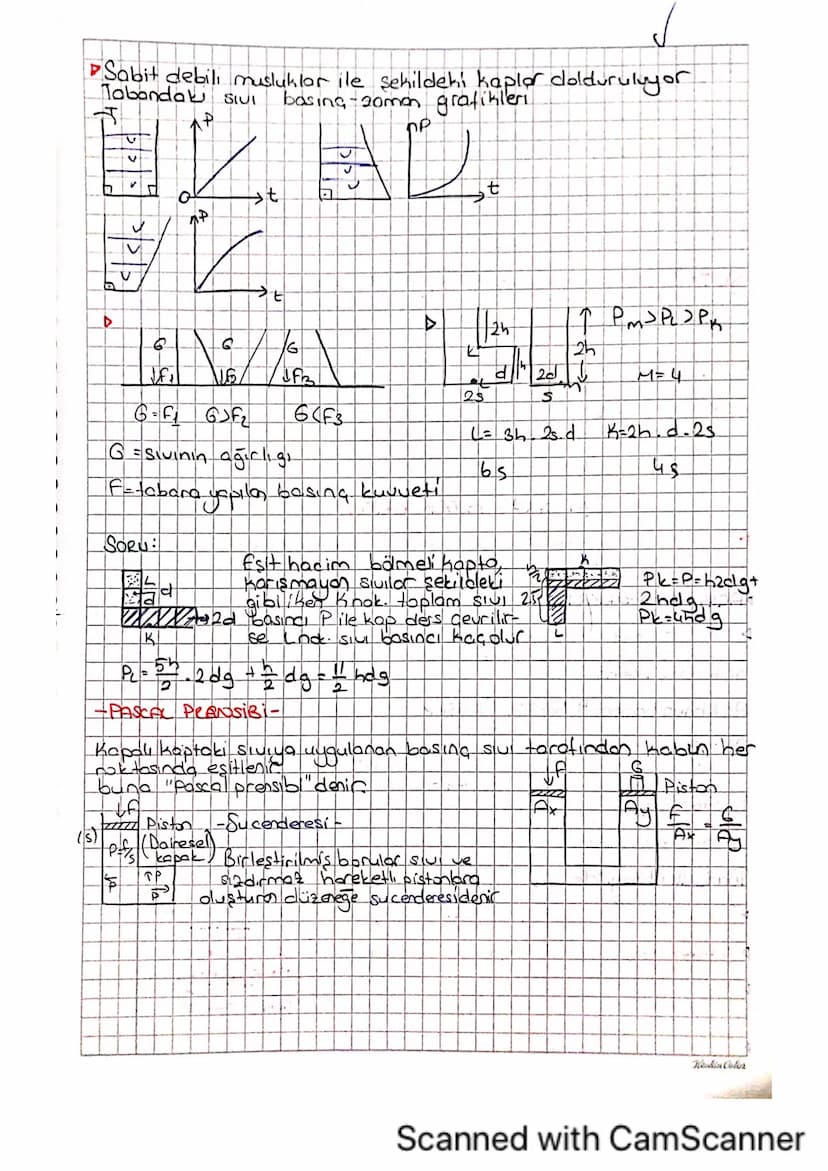 Sabit debili musluklar ile şekildeki kaplar dolduruluyor
Tabandaki sıvı basınç-zaman grafikleri
P
P
t
O
t
V
V
V
V
V
V
P
V
V
V
t
G
G
G
2h
Pm>PL>PK
↓F1
↓F3
↓F2
L
d
h
2d
2h
M=4
2s
s
G=F1 G>F2 G<F3
L= 3h.2s.d K=2h.d.2s
G=sıvının ağırlığı
6s
4s
F=tabana yapılan basınç kuvveti
Soru:
Eşit hacim bölmeli kapta,
karışmayan sıvılar şekildeki
gibi iken K nok. toplam sıvı
basıncı P ile kap ders çevrilir-
se L nok. sıvı basıncı kaç olur
L
d
d
2d
K
K
L
PK=P=h2dg+
2hdg
PK=4hdg
PL=5h/2.2dg+h/2dg=11/2hdg
-PASCAL PRANSİBİ-
Kapalı kaptaki sıvıya uygulanan basınç sıvı tarafından kabın her
noktasında eşitlenir
buna "Pascal prensibi" denir.
↓F
↓F
G
Piston
Ax
Ay
F/Ax=G/Ay
Piston -Sucenderesi-
(s)
P=F/s
(Dairesel kapak)
Birleştirilmiş borular sıvı ve
P
↑P
P
sızdırmaz hareketli pistonlara
oluşturan düzeneğe sucenderesidenir
Keskin Color
Scanned with CamScanner